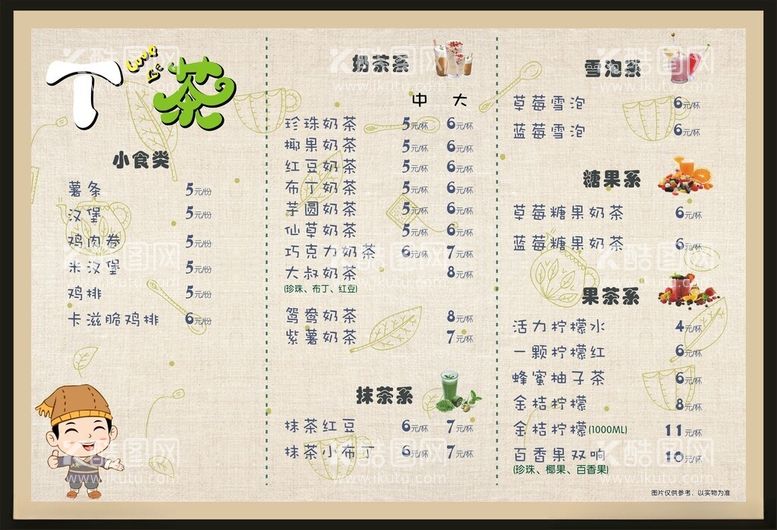 丁茶
Love
小食类
薯条 5元/份
汉堡 5元/份
鸡肉卷 5元/份
米汉堡 5元/份
鸡排 5元/份
卡滋脆鸡排 6元/份
奶茶系
中 大
珍珠奶茶 5元/杯 6元/杯
椰果奶茶 5元/杯 6元/杯
红豆奶茶 5元/杯 6元/杯
布丁奶茶 5元/杯 6元/杯
芋圆奶茶 5元/杯 6元/杯
仙草奶茶 5元/杯 6元/杯
巧克力奶茶 6元/杯 7元/杯
大叔奶茶 8元/杯
(珍珠、布丁、红豆)
鸳鸯奶茶 8元/杯
紫薯奶茶 7元/杯
抹茶系
抹茶红豆 6元/杯 7元/杯
抹茶小布丁 6元/杯 7元/杯
雪泡系
草莓雪泡 6元/杯
蓝莓雪泡 6元/杯
糖果系
草莓糖果奶茶 6元/杯
蓝莓糖果奶茶 6元/杯
果茶系
活力柠檬水 4元/杯
一颗柠檬红 6元/杯
蜂蜜柚子茶 6元/杯
金桔柠檬 8元/杯
金桔柠檬(1000ML) 11元/杯
百香果双响 10元/杯
(珍珠、椰果、百香果)
图片仅供参考，以实物为准